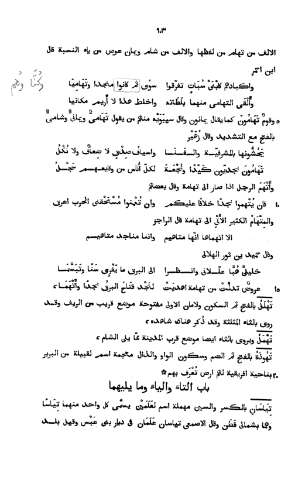 ٦٠٣
الالف من تهام من لفظها والالف من شام ويمان عوض من ياء النسبة قال
ابن احمر
واكبادهم كابنى سبات تفرقوا سوى ثم كانوا منجدا وتهاميا
وكُنَّا وهُم
وألقى التهامى منهما بلطاته واخلط هذا لا أريم مكانيا
وقوم تهامون كما يقال يمانون وقال سيبويه منهم من يقول تهامى ويمانى وشامى
بالفتح مع التشديد وقال زهير
يحشونها بالمشرفية والقنا وفتيان صدق لا ضعاف ولا نكل
تهامون نجديون كيدا ونجعة لكل أناس من وقائعهم سجل
وأتهم الرجل اذا صار الى تهامة وقال بعضهم
فان تتهموا أنجد خلافا عليكم وان تعمنوا مستحقبى الحرب أعرق
والمتهام الكثير الاتيان الى تهامة قال الراجز
الا انهماها انها متاهيم واننا مناجد متاهيم
وقال حميد بن ثور الهلالى
خليلى هبا عللانى وانظرا الى البرق ما يفرى سنا وتبسما
عروض تدلت من تهامة اهديت لنجد فتاح البرق نجدا وأتهما
تهلل بالفتح ثم السكون ولامين الاولى مفتوحة موضع قريب من الريف وقد
روى بالثاء المثلثة وقد ذكر هناك شاهده
تهلل ويروى بالثاء ايضا موضع قرب المدينة مما يلى الشام
تهوذة بالفتح ثم الضم وسكون الواو والذال معجمة اسم لقبيلة من البربر
بناحية افريقية لهم ارض تعرف بهم
باب التاء والياء وما يليهما
تياسان بالكسر والسين مهملة اسم لعلمين يسمى كل واحد منهما تياسا
وهما بشمالى قطن وقال الاصمعى تياسان علمان فى ديار بنى عبس وقيل بلد